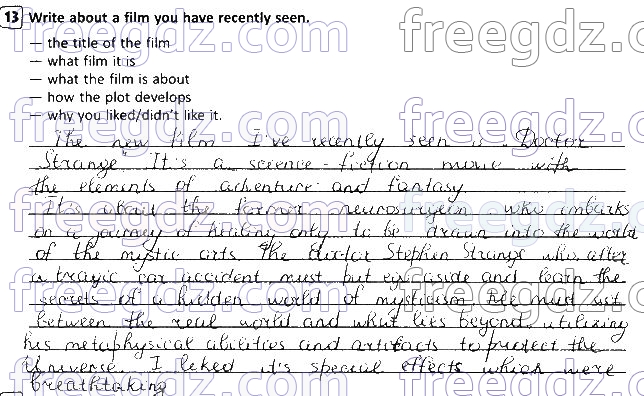 13 Write about a film you have recently seen.
— the title of the film
— what film it is
— what the film is about
— how the plot develops
— why you liked/didn't like it.
The new film I've recently seen is "Doctor
Strange". It's a science-fiction movie with
the elements of adventure and fantasy.
It's about the former neurosurgeon who embarks
on a journey of healing only to be drawn into the world
of the mystic arts. The doctor Stephen Strange who, after
a tragic car accident must put ego aside and learn the
secrets of a hidden world of mysticism. He must
between the real world and what lies beyond, utilizing
his metaphysical abilities and artifacts to protect the
Universe. I liked it's special effects which were
breathtaking
freegdz.com freegdz.com
freegdz.com freegdz.com
freegdz.com freegdz.com
freegdz.com freegdz.com
freegdz.com freegdz.com